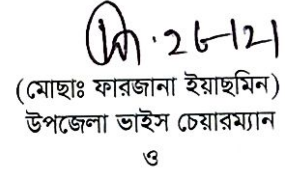 (মোছাঃ ফারজানা ইয়াছমিন)
উপজেলা ভাইস চেয়ারম্যান
ও